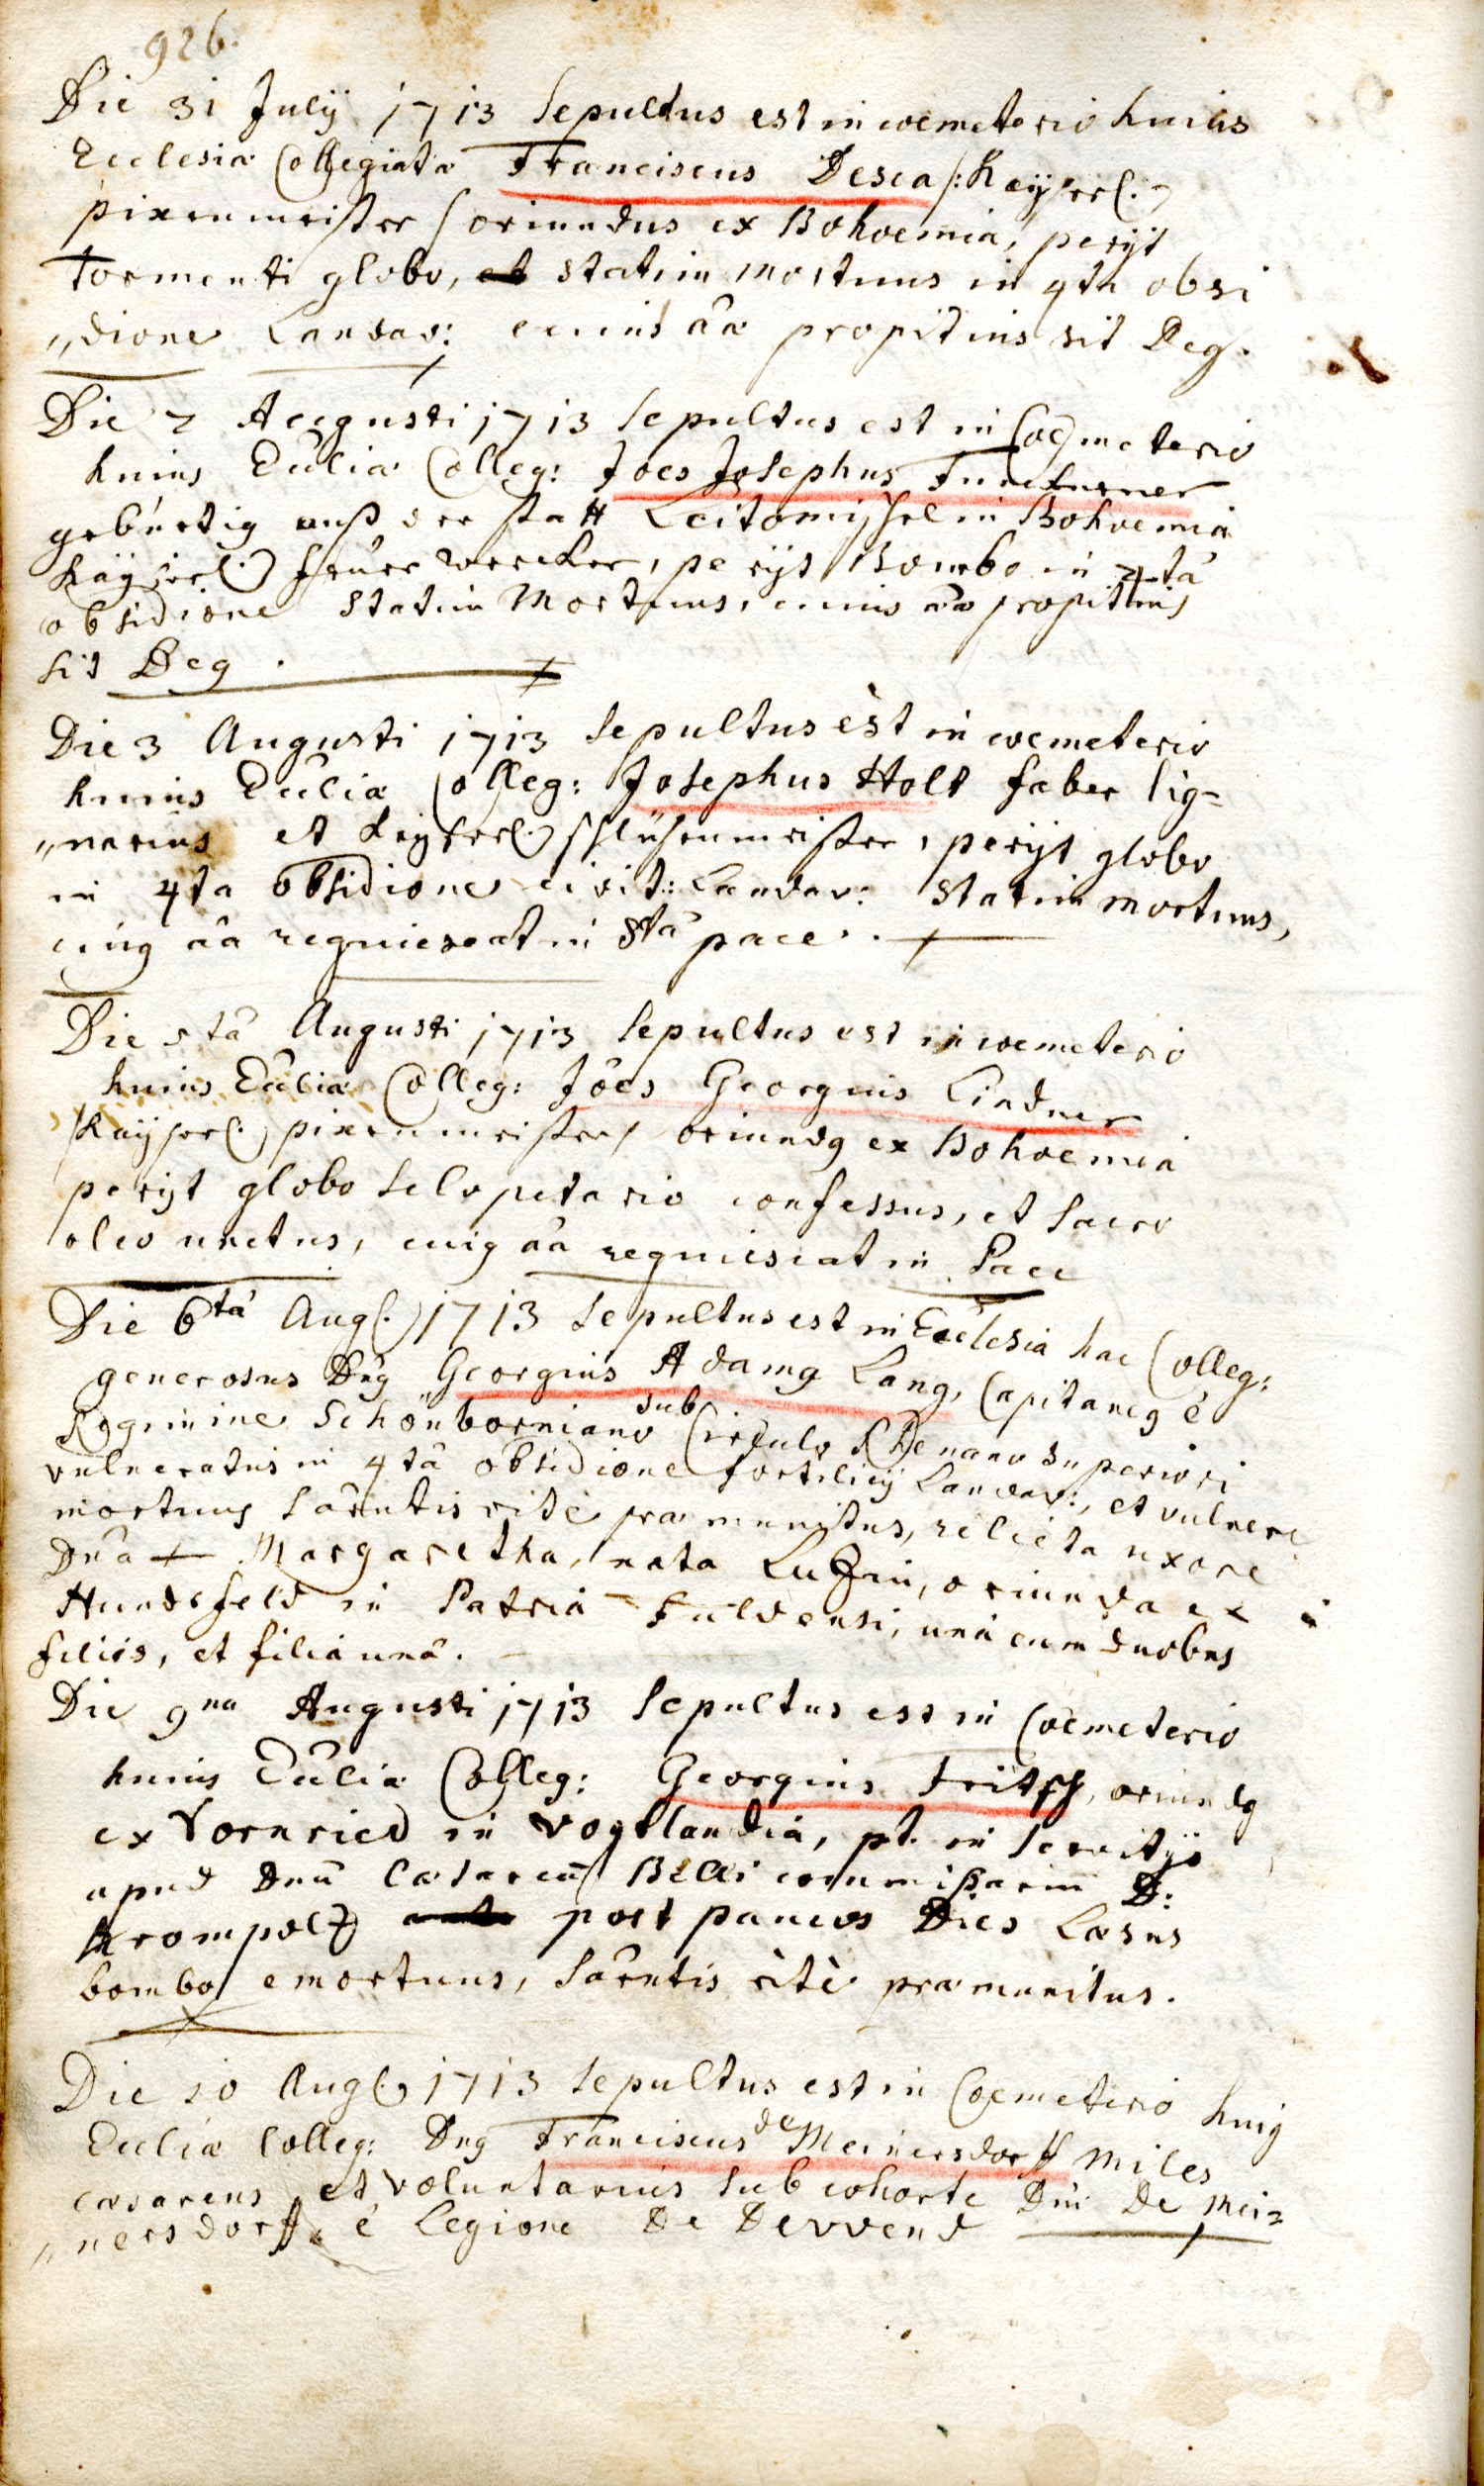 926.
Die 31 Julij 1713 Sepultus est in coemeterio huius
Ecclesiæ Collegiatæ Franciscus Desca /: Kayserl:
pixenmeister / oriundus ex Bohoemia, perijt
tormenti globo, statim mortuus in 4ta obsi
„dione Landav: cuius aâæ propitius sit Deg.
Die 2 Augusti 1713 Sepultus est in Coemeterio
huius Ecclîæ Colleg: Joes Josephus
gebürtig auß der statt Leitomischel in Bohoemia
Kaÿserl: feuer wercker, perijt Bombo in 4tâ
obsidione statim Mortuus, cuius aâæ propitius
sit Deg.
Die 3 Augusti 1713 Sepultus est in coemeterio
huius Ecclîæ Colleg: Josephus Holt faber lig=
„narius et Keyserl: perijt globo
in 4ta obsidione civit: Landav: statim mortuus,
cuig aâa requiescat in Stâ pace.
Die 5tâ Augusti 1713 Sepultus est in coemeterio
huius Ecclîæ Colleg: Jôes Georgius Lindner
/Kaÿserl: pixenmeister/ oriundg ex Bohoemia
perijt globo sclopetario confessus, et sacro
oleo unctus, cuig aâa requiescat in Pace
Die 6tâ Aug: 1713 Sepultus est in Ecclesia hac Colleg:
generosus Dng Georgius Adamg Lang, Capitaneg è
Regimine Schönborniano sub Circulo Rhenano Superiori
vulneratus in 4tâ obsidione fortilicij Landav:, et vulnere
mortuus Sacrntis ritè præmunitus, relicta uxore
Dnâ Margaretha, nata Lutzin, oriunda ex
Hundsfeld in Patria Fuldensi, unà cum duobus
filiis, et filia unâ.
Die 9na Augusti 1713 Sepultus est in Coemeterio
huius Ecclîæ Colleg: Georgius Fritsch, oriundg
ex Vornried in Vogtlandia, pt. in servitijs
apud Dnū Cæsareū Belli commißariū D:
Krompoltz post paucos Dies Læsus
bombo emortuus, Sacrntis ritè præmunitus.
Die 10 Aug: 1713 Sepultus est in Coemeterio huig
Ecclîæ Colleg: Dng Franciscus de Meinersdorff miles
cæsareus et voluntarius sub cohorte Dni De Mei=
„nersdorff è Legione De Devvend